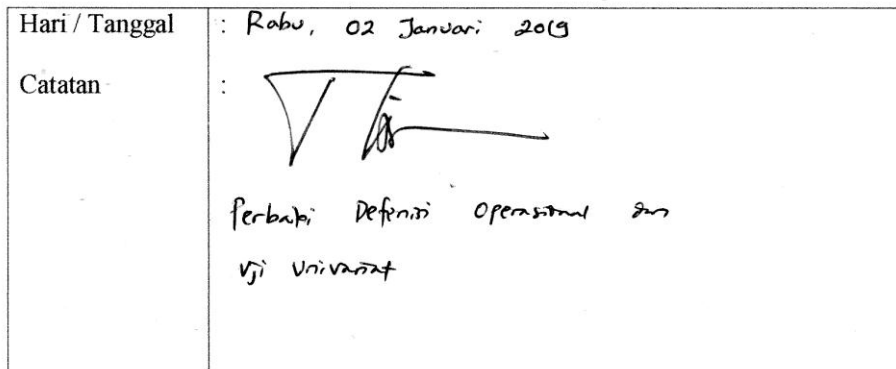 Hari / Tanggal : Rabu, 02 Januari 2019
Catatan :
Perbaiki Defenisi Operasional dan
Uji Univariat